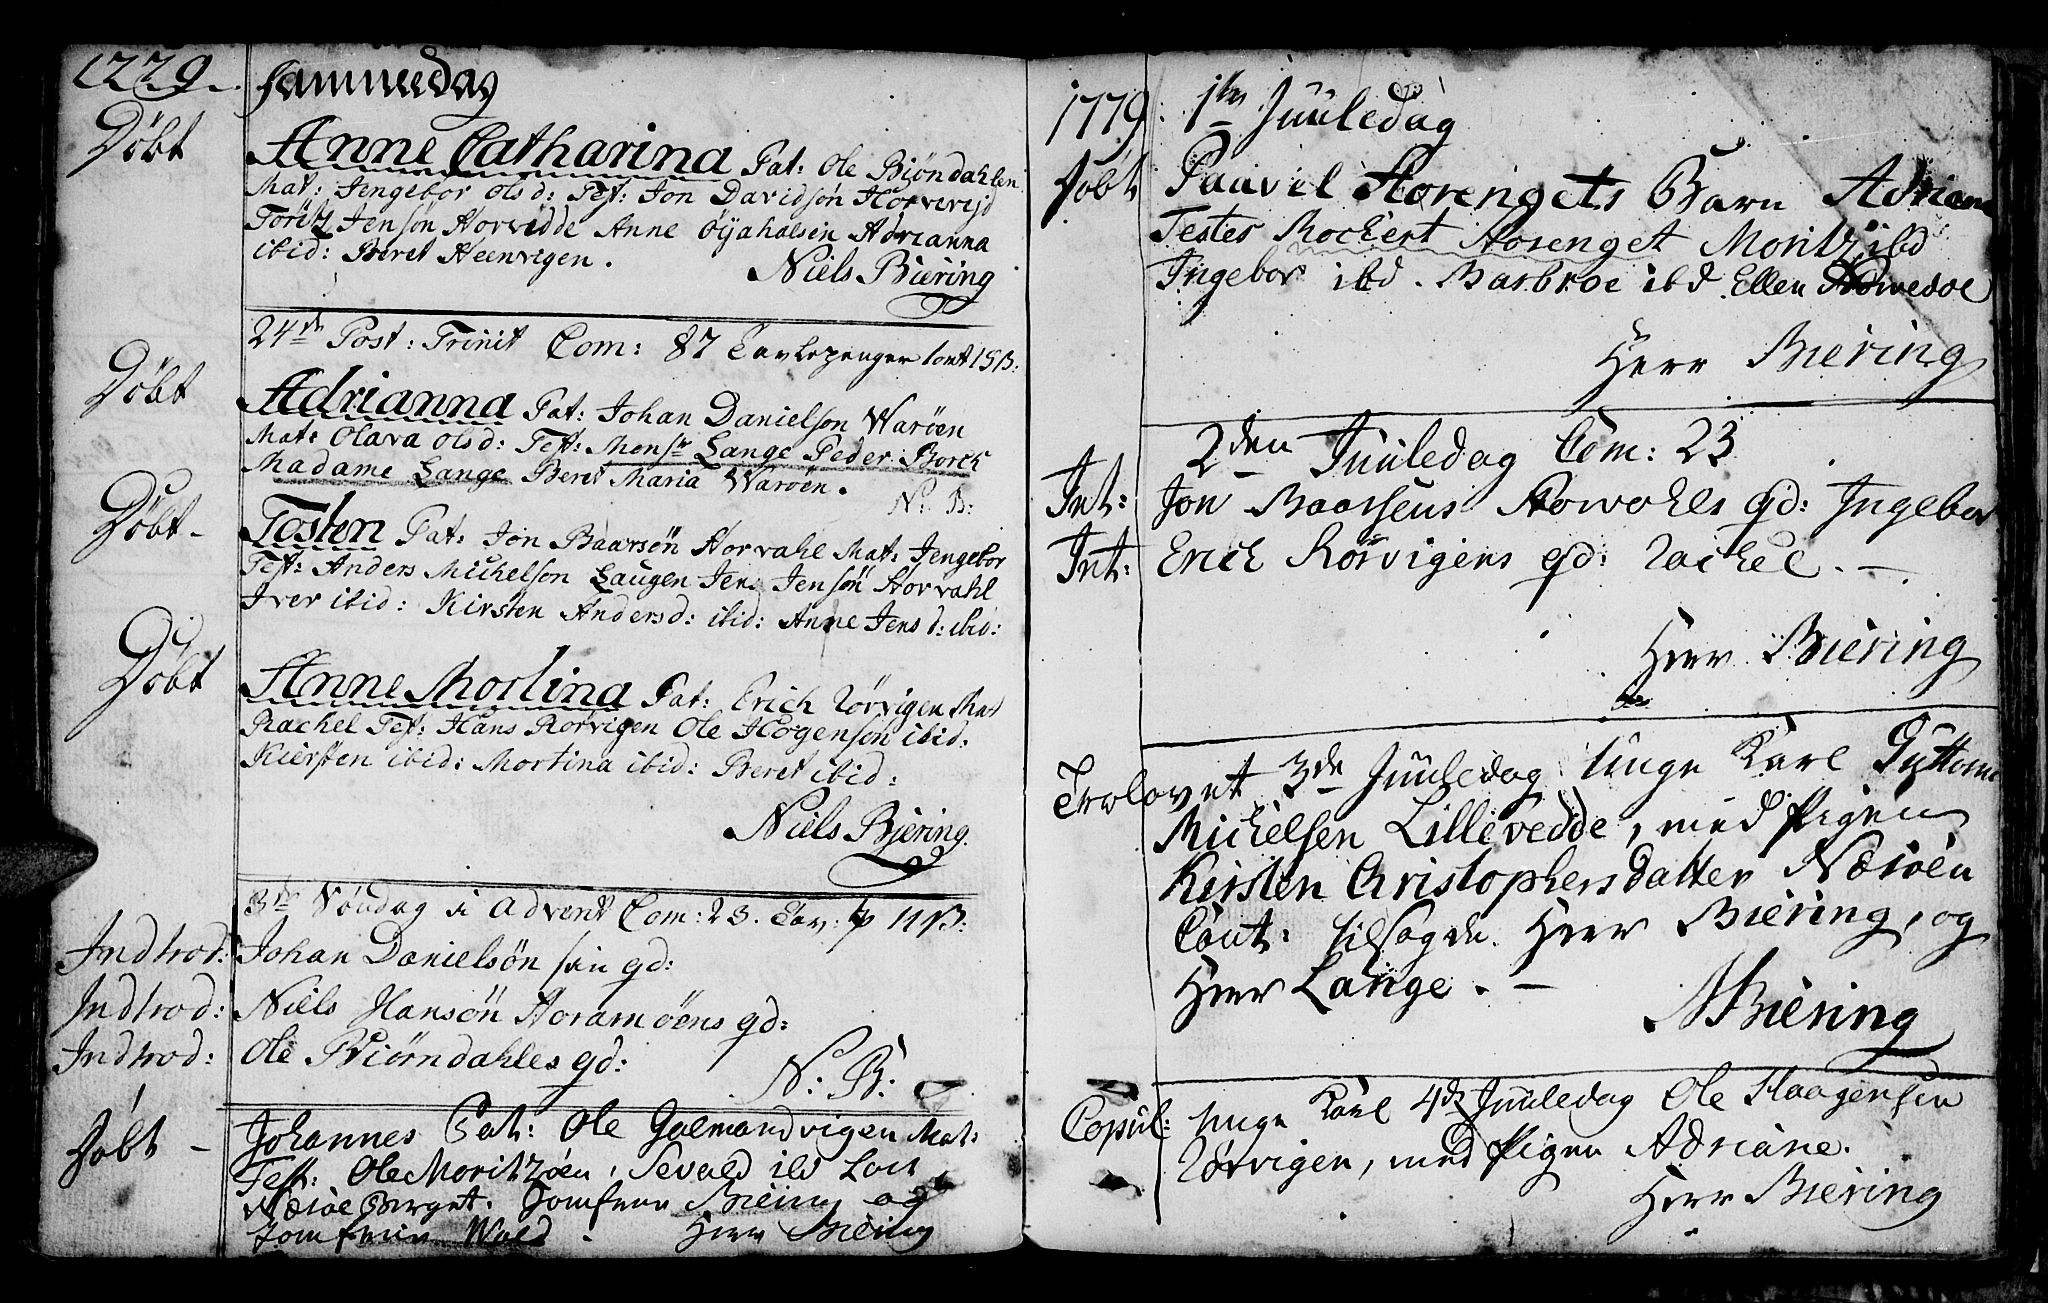 1779. Sammedag
Døbt
Anne Catharina Pat: Ole Biöndahlen
Mat: Jengebor Olsd: Test: Jon Davidsøn Horvereid
Töritz Jensön Horvedde Anne Öÿahalsen Adrianna
ibid: Beret Heenvigen.
Niels Biering
24de Post: Trinit Com: 87 Tavlepenger 1ort 15 B:
Døbt
Adrianna Pat: Johan Danielsøn Warøen
Mat: Olava Olsd: Test: Monsr Lange Peder Borch
Madame Lange Beret Maria Warøen.
N: B:
Døbt -
Tosten Pat: Jon Baarsøn Horvahl Mat: Jengebor
Test: Anders Michelsøn Laugen Jens Jensøn Horvahl
Iver ibid: Kirsten Andersd: ibid: Anne Jensd: ibid:
Døbt
Anne Mortina Pat: Erich Rørvigen Mat
Rachel Test: Hans Rørvigen Ole Hogensøn ibid:
Kiersten ibid: Mortina ibid: Beret ibid:
Niels Biering
3de Söndag i Advent Com: 23. Tav: 11 B:
Indtrod: Johan Danielsøn sin qd:
Indtrod: Niels Hansøn Horamöens qd:
Indtrod: Ole Biørndahles qd:
N: B:
Døbt -
Johannes Pat: Ole Galmandvigen Mat:
Test: Ole Moritzøen, Sevald ibd
Næröe Berget. Jomfrue Biering og
Jomfrue Wold. Herr Biering
1779. 1te Juuledag
Døbt
Paavel Horengets Barn Adriane
Testes Rochert Horenget Moritz ibd
Ingebor ibd. Barbroe ibd. Ellen
Herr Biering
2den Juuledag Com: 23
Int: Jon Baarsens Horvahls qd: Ingebor
Int: Erich Rörvigens qd: Rachel. -
Herr Biering
Trolovet 3de Juuledag unge Karl Guttorm
Michelsen Lillevedde, med Pigen
Kirsten Christophersdatter Næröen
Caut: tilsagde. Herr Biering, og
Herr Lange. -
NBiering
Copul: unge Karl 4de Juuledag Ole Haagensen
Rörvigen, med Pigen Adriane.
Herr Biering